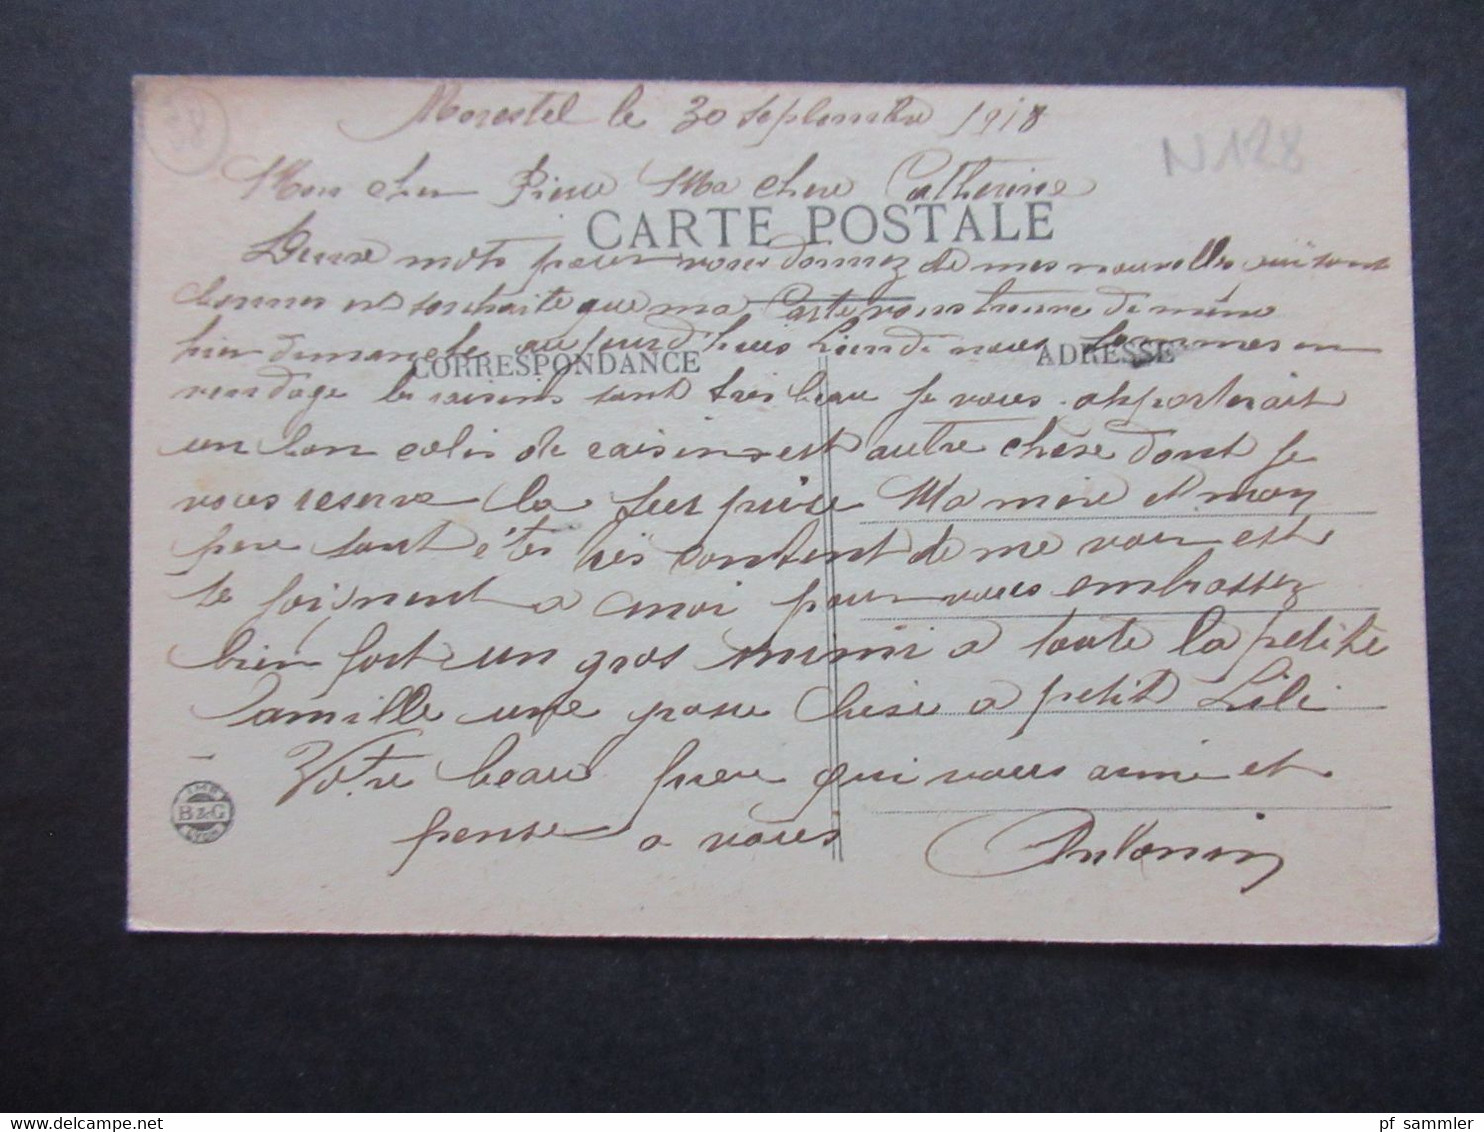 38
Morestel le 30 septembre 1918
N128
Mon cher Pierre Ma chere Catherine
CARTE POSTALE
Deux mots pour vous donnez de mes nouvelles qui sont
bonnes est souhaite que ma Carte vous trouve de même
hier dimanche aujourd'huis Lundi nous sommes en
CORRESPONDANCE
ADRESSE
vendage les raisins sont tres beau je vous apporterait
un bon colis de raisins est autre chose dont je
vous reserve la surprise Ma mère et mon
pere sont êtes très content de me voir est
se joignent a moi pour vous embrassez
bien fort un gros mimi a toute la petite
famille une grosse bise a petit Lili
Votre beau frere qui vous aime et
pense a vous
Antonin
IMP
B & G
Lyon
pf sammler